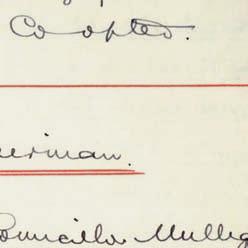 Co opted.
erman.
Councillor Mullig